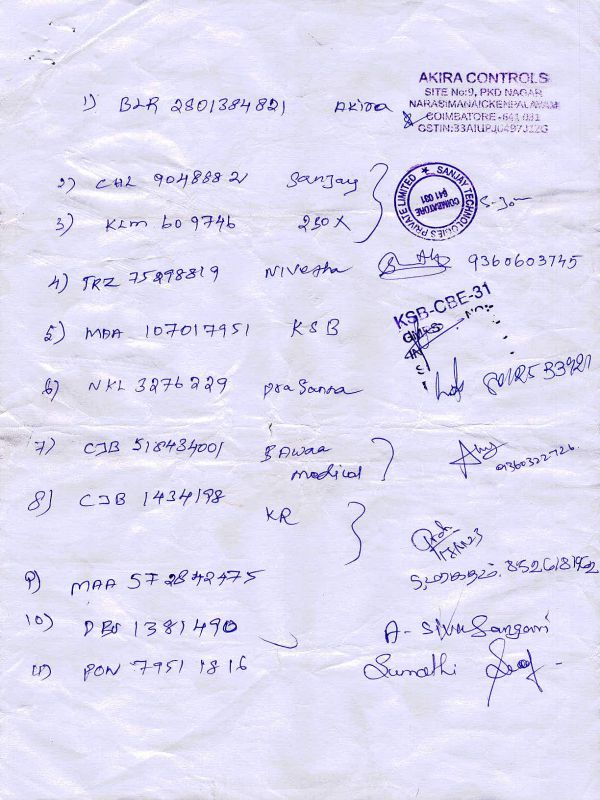 AKIRA CONTROLS
SITE No:9, PKD NAGAR
NARASIMANAICKENPALAYAM
COIMBATORE - 641 031
GSTIN:33AIUPJ0497J1ZG
1) BLR 2801384821 Akira
2) CHL 9048882 Sanjay
3) KLM 609746 230X
SANJAY TECHNOLOGIES PRIVATE LIMITED
COIMBATORE
641 031
4) TRZ 75298819 Nivetha 9360603745
KSB-CBE-31
5) MAA 107017951 KSB
6) NKL 3276229 prasanna
7) CJB 518434001 BAwaa
medical
9360322726
8) CJB 1434198
KR
9) MAA 572842475
10) DBS 1381490 A- Siva Sangari
11) PON 79511816 Sumathi